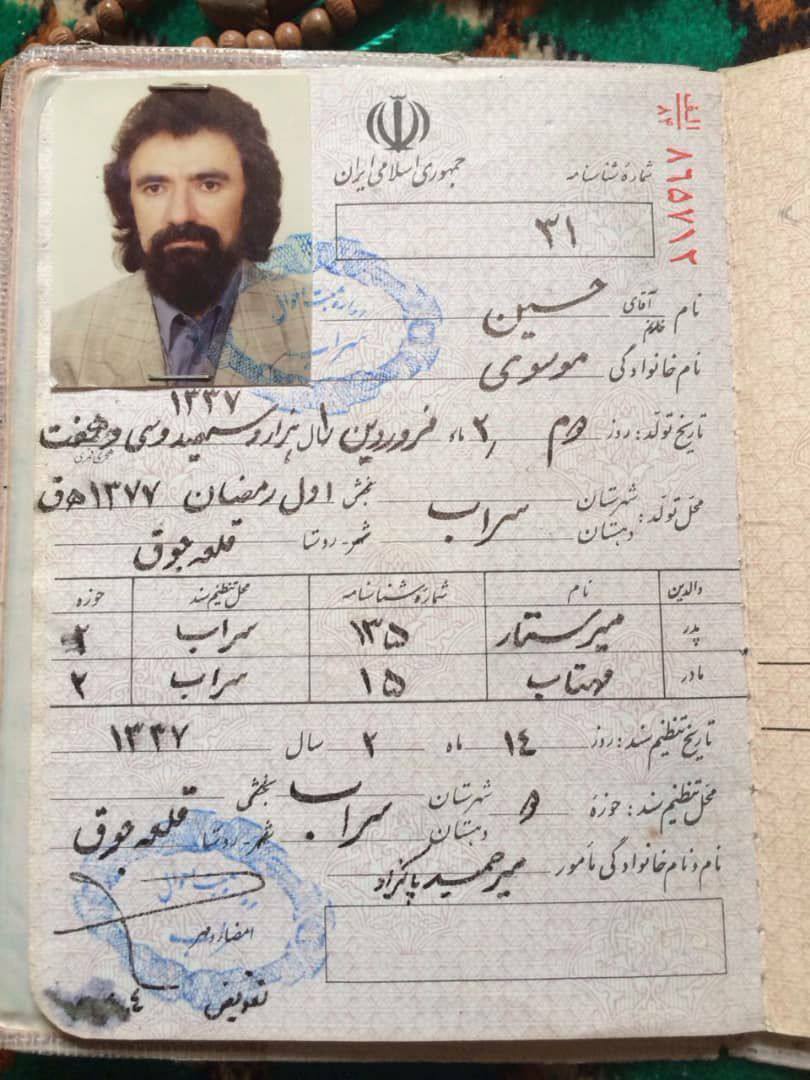 الف
۸۴
۸۶۵۷۱۲
جمهوری اسلامی ایران
شمارهٔ شناسنامه
۳۱
نام آقای خانم حسین
نام خانوادگی موسوی
۱۳۳۷
تاریخ تولد: روز دوم ۲ ماه فروردین سال هزار و سیصد و سی و هفت
محل تولد: شهرستان سراب بخش اول رمضان ۱۳۷۷ هـ ق
دهستان شهر-روستا قلعه جوق
والدین نام شمارهٔ شناسنامه محل تنظیم سند حوزه
پدر میرستار ۱۳۵ سراب ۲
مادر مهتاب ۱۵ سراب ۲
تاریخ تنظیم سند: روز ۱۴ ماه ۲ سال ۱۳۳۷
محل تنظیم سند: حوزهٔ شهرستان سراب بخش
دهستان شهر-روستا قلعه جوق
نام و نام خانوادگی مأمور میرحمید پاکراد
امضاء و مهر
تعویض